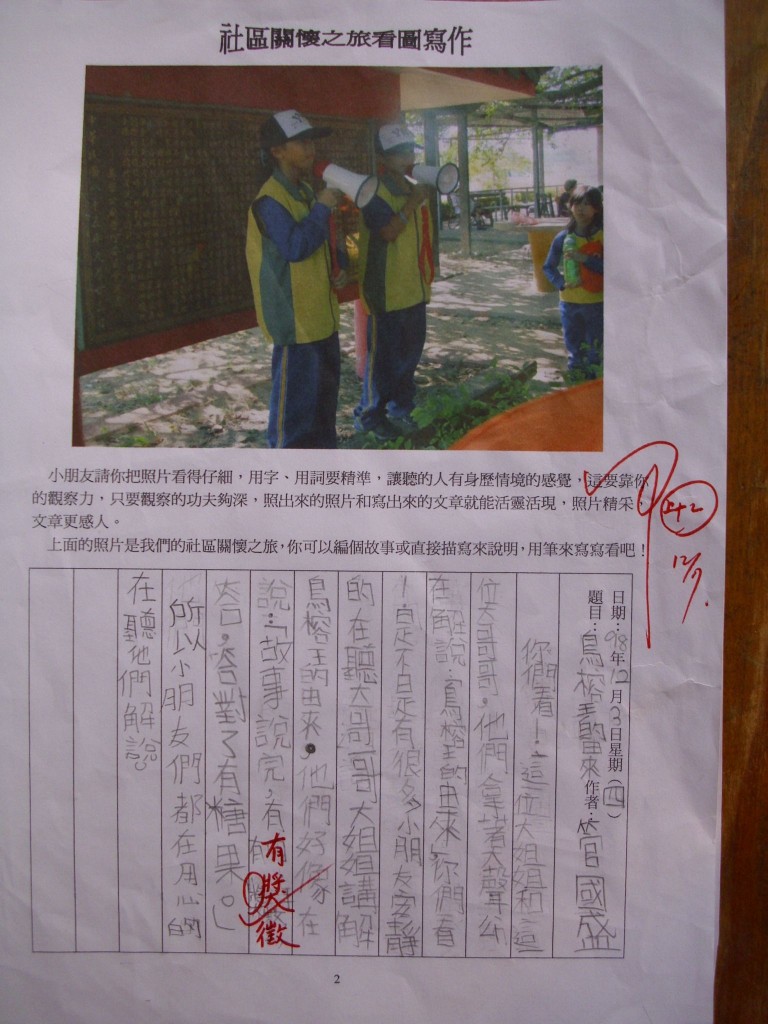 社區關懷之旅看圖寫作
小朋友請你把照片看得仔細，用字、用詞要精準，讓聽的人有身歷情境的感覺，這要靠你
的觀察力，只要觀察的功夫夠深，照出來的照片和寫出來的文章就能活靈活現，照片精采，
文章更感人。
上面的照片是我們的社區關懷之旅，你可以編個故事或直接描寫來說明，用筆來寫寫看吧！
12/7.
日期：98年12月3日星期(四)
題目：鳥榕王的由來作者：管國盛
你們看！這位大姐姐和這
位大哥哥，他們拿著大聲公
在解說，鳥榕王的由來，你們看
！是不是有很多小朋友安靜
的在聽大哥哥大姐姐講解
鳥榕王的由來，他們好像在
說：「故事說完，有
有獎徵
答。答對了有糖果。」
所以小朋友們都在用心的
在聽他們解說
2